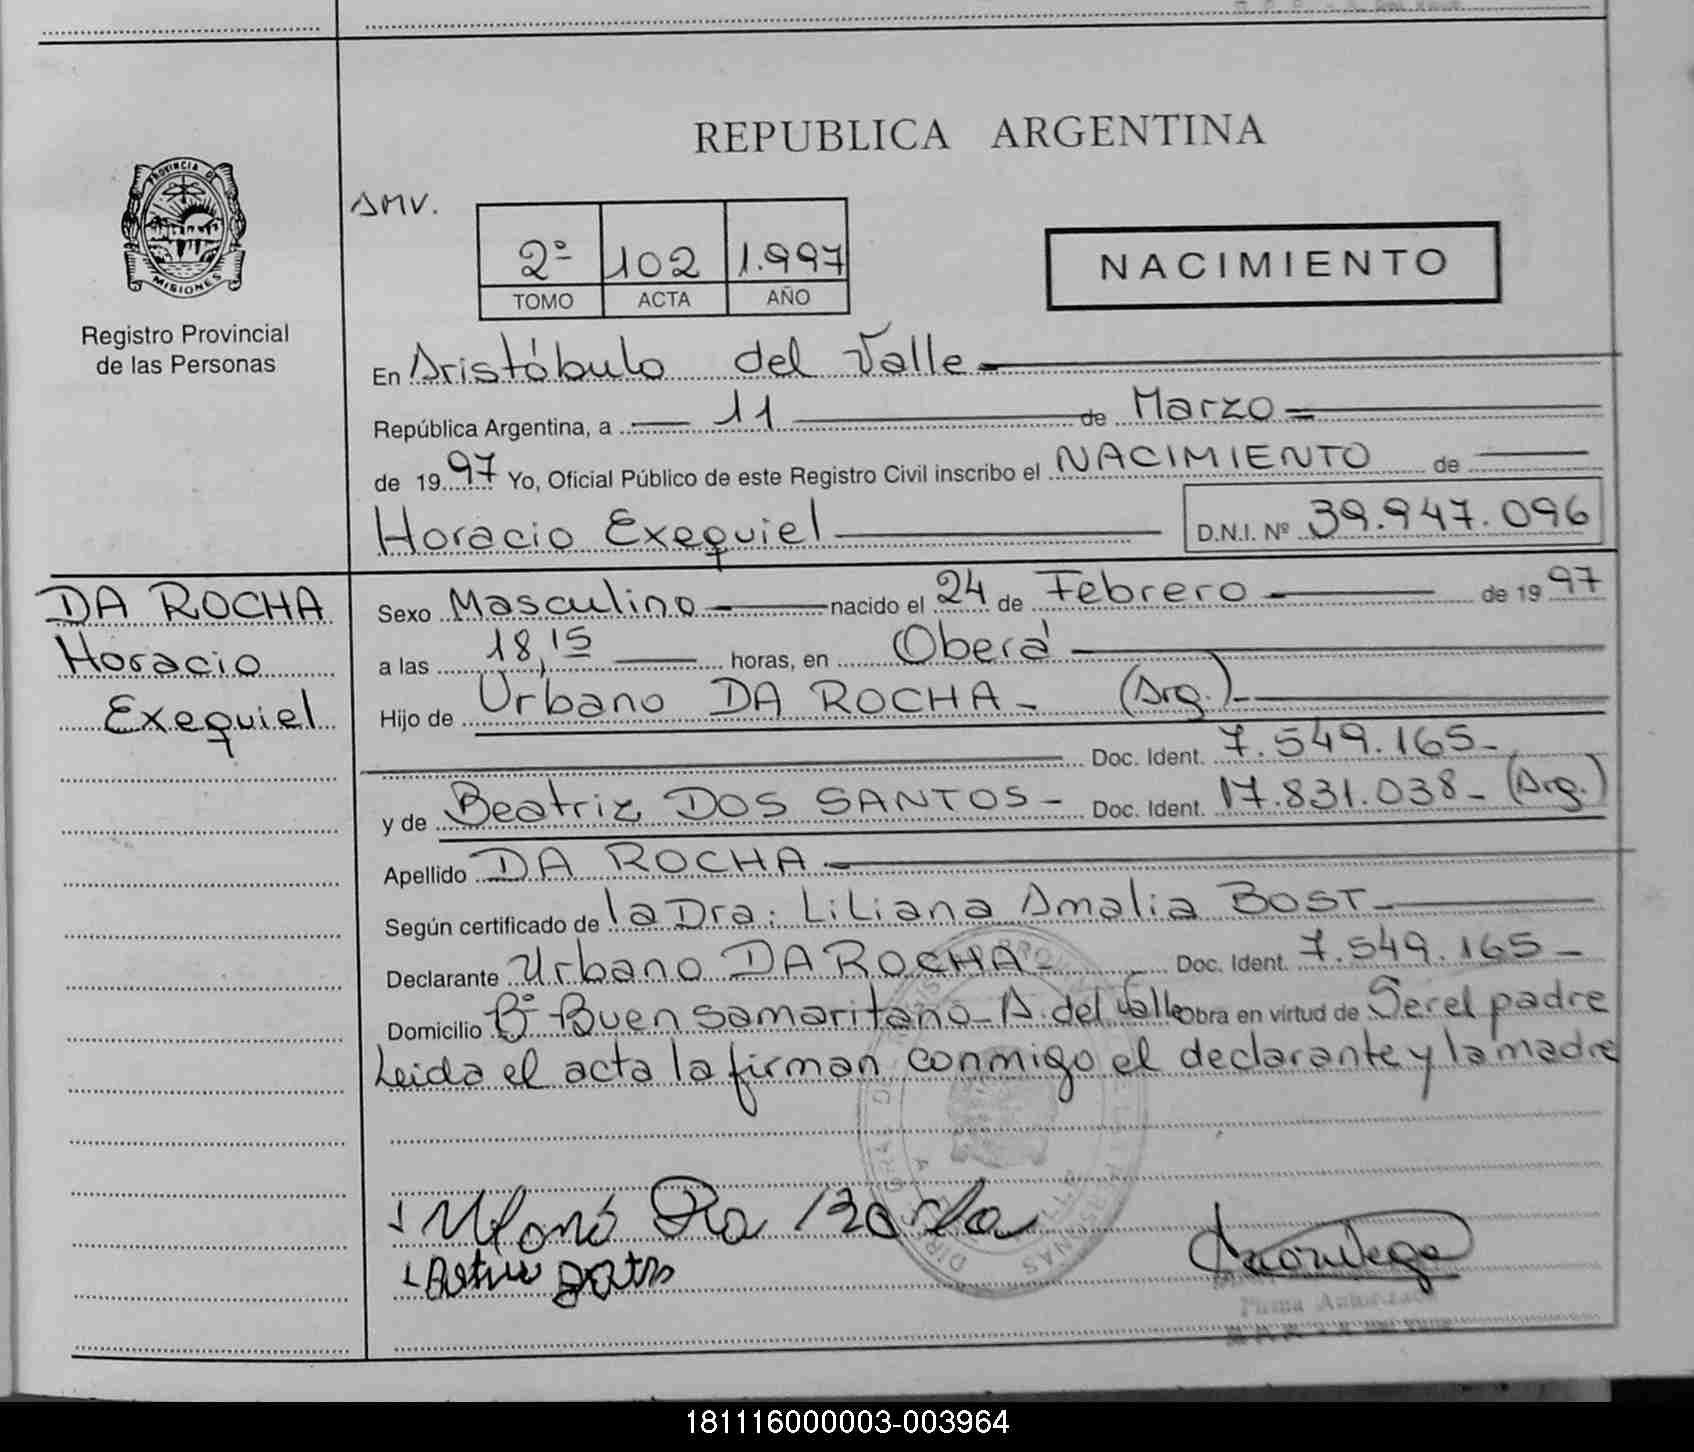 REPUBLICA ARGENTINA
PROVINCIA DE
MISIONES
Registro Provincial
de las Personas
2º 102 1.997
TOMO ACTA AÑO
NACIMIENTO
En Aristóbulo del Valle
República Argentina, a 11 de Marzo
de 1997 Yo, Oficial Público de este Registro Civil inscribo el NACIMIENTO de
Horacio Exequiel D.N.I. Nº 39.947.096
DA ROCHA
Horacio
Exequiel
Sexo Masculino nacido el 24 de Febrero de 1997
a las 18,15 horas, en Oberá
Hijo de Urbano DA ROCHA - (Arg.) -
Doc. Ident. 7.549.165 -
y de Beatriz DOS SANTOS - Doc. Ident. 17.831.038 - (Arg.)
Apellido DA ROCHA
Según certificado de la Dra: Liliana Amalia BOST -
Declarante Urbano DA ROCHA - Doc. Ident. 7.549.165 -
Domicilio Bº Buen Samaritano - A. del Valle Obra en virtud de Ser el padre
Leida el acta la firman conmigo el declarante y la madre
181116000003-003964